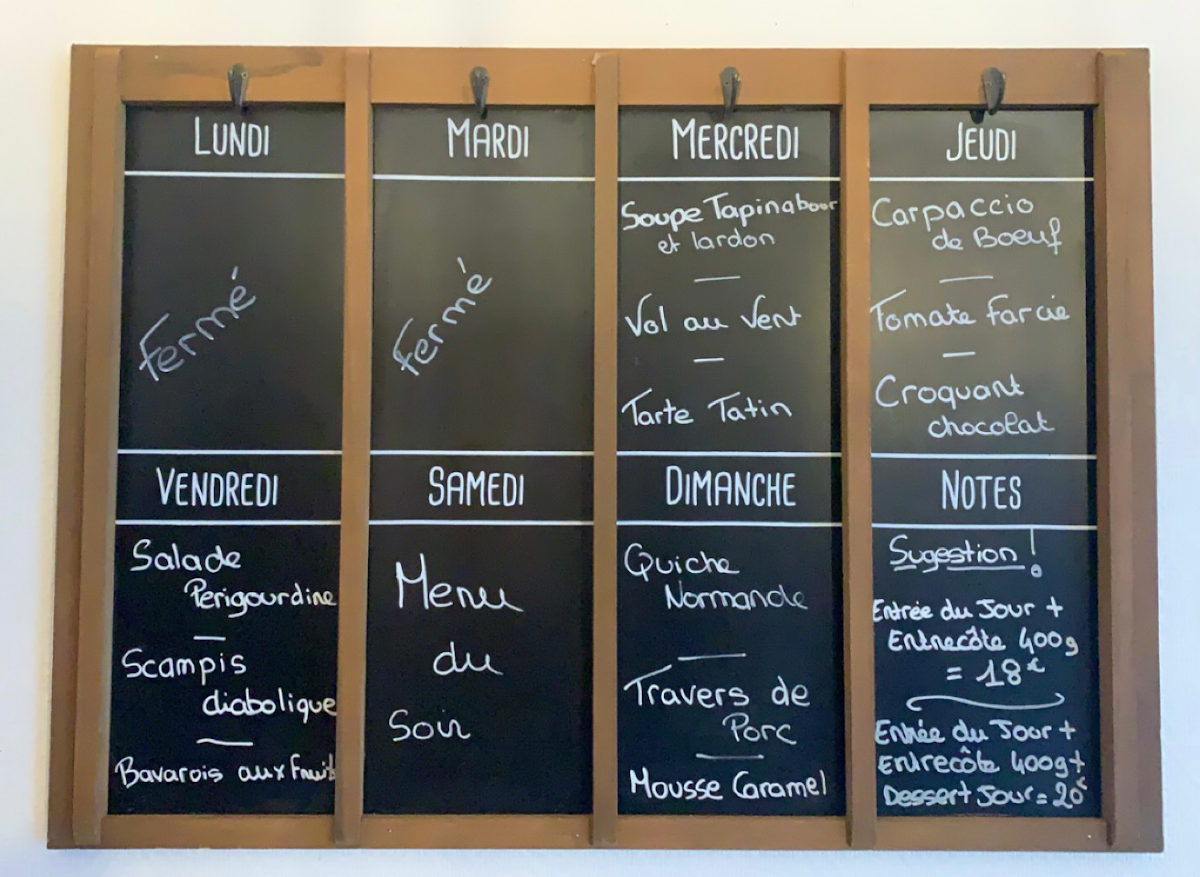 LUNDI
Fermé
MARDI
Fermé
MERCREDI
Soupe Tapinabour
et lardon
Vol au Vent
Tarte Tatin
JEUDI
Carpaccio
de Boeuf
Tomate Farcie
Croquant
chocolat
VENDREDI
Salade
Perigourdine
Scampis
diabolique
Bavarois aux Fruit
SAMEDI
Menu
du
Soir
DIMANCHE
Quiche
Normande
Travers de
Porc
Mousse Caramel
NOTES
Sugestion !
Entrée du Jour +
Entrecôte 400g
= 18€
Entrée du Jour +
Entrecôte 400g+
Dessert Jour = 20€